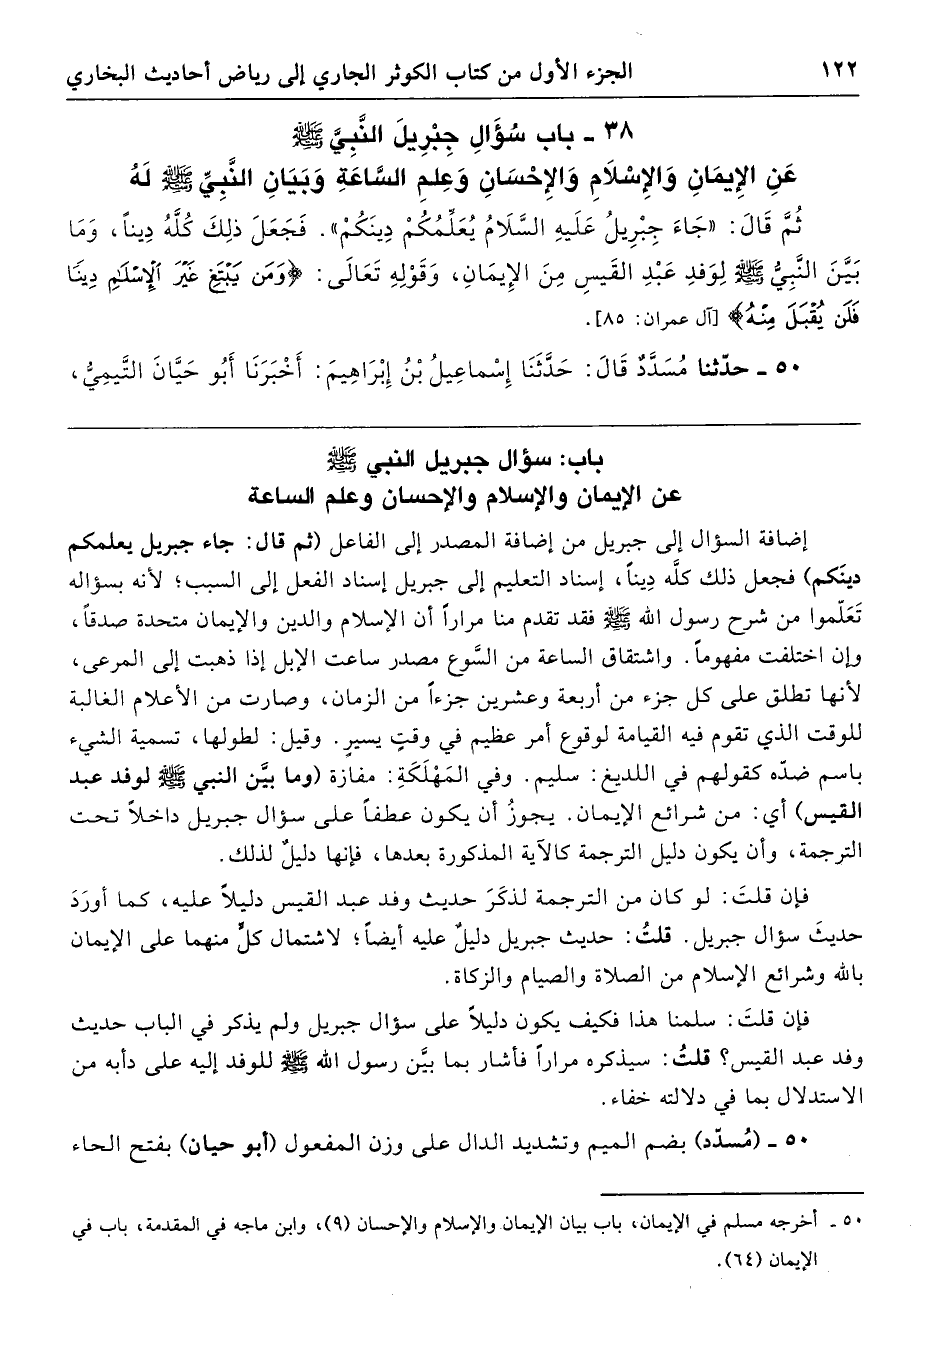 ١٢٢ الجزء الأول من كتاب الكوثر الجاري إلى رياض أحاديث البخاري
٣٨ - باب سُؤَالِ جِبْرِيلَ النَّبِيَّ ﷺ
عَنِ الإِيمَانِ وَالإِسْلَامِ وَالإِحْسَانِ وَعِلمِ السَّاعَةِ وَبَيَانِ النَّبِيِّ ﷺ لَهُ
ثُمَّ قَالَ: «جَاءَ جِبْرِيلُ عَلَيهِ السَّلَامُ يُعَلِّمُكُمْ دِينَكُمْ». فَجَعَلَ ذلِكَ كُلَّهُ دِيناً، وَمَا
بَيَّنَ النَّبِيُّ ﷺ لِوَفدِ عَبْدِ القَيسِ مِنَ الإِيمَانِ، وَقَوْلِهِ تَعَالَى: ﴿وَمَن يَبْتَغِ غَيْرَ الْإِسْلَٰمِ دِينًا
فَلَن يُقْبَلَ مِنْهُ﴾ [آل عمران: ٨٥].
٥٠ - حدّثنا مُسَدَّدٌ قَالَ: حَدَّثَنَا إِسْماعِيلُ بْنُ إِبْرَاهِيمَ: أَخْبَرَنَا أَبُو حَيَّانَ التَّيمِيُّ،
باب: سؤال جبريل النبي ﷺ
عن الإيمان والإسلام والإحسان وعلم الساعة
إضافة السؤال إلى جبريل من إضافة المصدر إلى الفاعل (ثم قال: جاء جبريل يعلمكم
دينَكم) فجعل ذلك كلَّه دِيناً، إسناد التعليم إلى جبريل إسناد الفعل إلى السبب؛ لأنه بسؤاله
تَعَلّموا من شرح رسول الله ﷺ فقد تقدم منا مراراً أن الإسلام والدين والإيمان متحدة صدقاً،
وإن اختلفت مفهوماً. واشتقاق الساعة من السَّوع مصدر ساعت الإبل إذا ذهبت إلى المرعى،
لأنها تطلق على كل جزء من أربعة وعشرين جزءاً من الزمان، وصارت من الأعلام الغالبة
للوقت الذي تقوم فيه القيامة لوقوع أمر عظيم في وقتٍ يسيرٍ. وقيل: لطولها، تسمية الشيء
باسم ضدّه كقولهم في اللديغ: سليم. وفي المَهْلَكَةِ: مفازة (وما بيَّن النبي ﷺ لوفد عبد
القيس) أي: من شرائع الإيمان. يجوزُ أن يكون عطفاً على سؤال جبريل داخلاً تحت
الترجمة، وأن يكون دليل الترجمة كالآية المذكورة بعدها، فإنها دليلٌ لذلك.
فإن قلتَ: لو كان من الترجمة لذكَرَ حديث وفد عبد القيس دليلاً عليه، كما أورَدَ
حديثَ سؤال جبريل. قلتُ: حديث جبريل دليلٌ عليه أيضاً؛ لاشتمال كلٍّ منهما على الإيمان
بالله وشرائع الإسلام من الصلاة والصيام والزكاة.
فإن قلتَ: سلمنا هذا فكيف يكون دليلاً على سؤال جبريل ولم يذكر في الباب حديث
وفد عبد القيس؟ قلتُ: سيذكره مراراً فأشار بما بيَّن رسول الله ﷺ للوفد إليه على دأبه من
الاستدلال بما في دلالته خفاء.
٥٠ - (مُسدّد) بضم الميم وتشديد الدال على وزن المفعول (أبو حيان) بفتح الحاء
٥٠ - أخرجه مسلم في الإيمان، باب بيان الإيمان والإسلام والإحسان (٩)، وابن ماجه في المقدمة، باب في
الإيمان (٦٤).